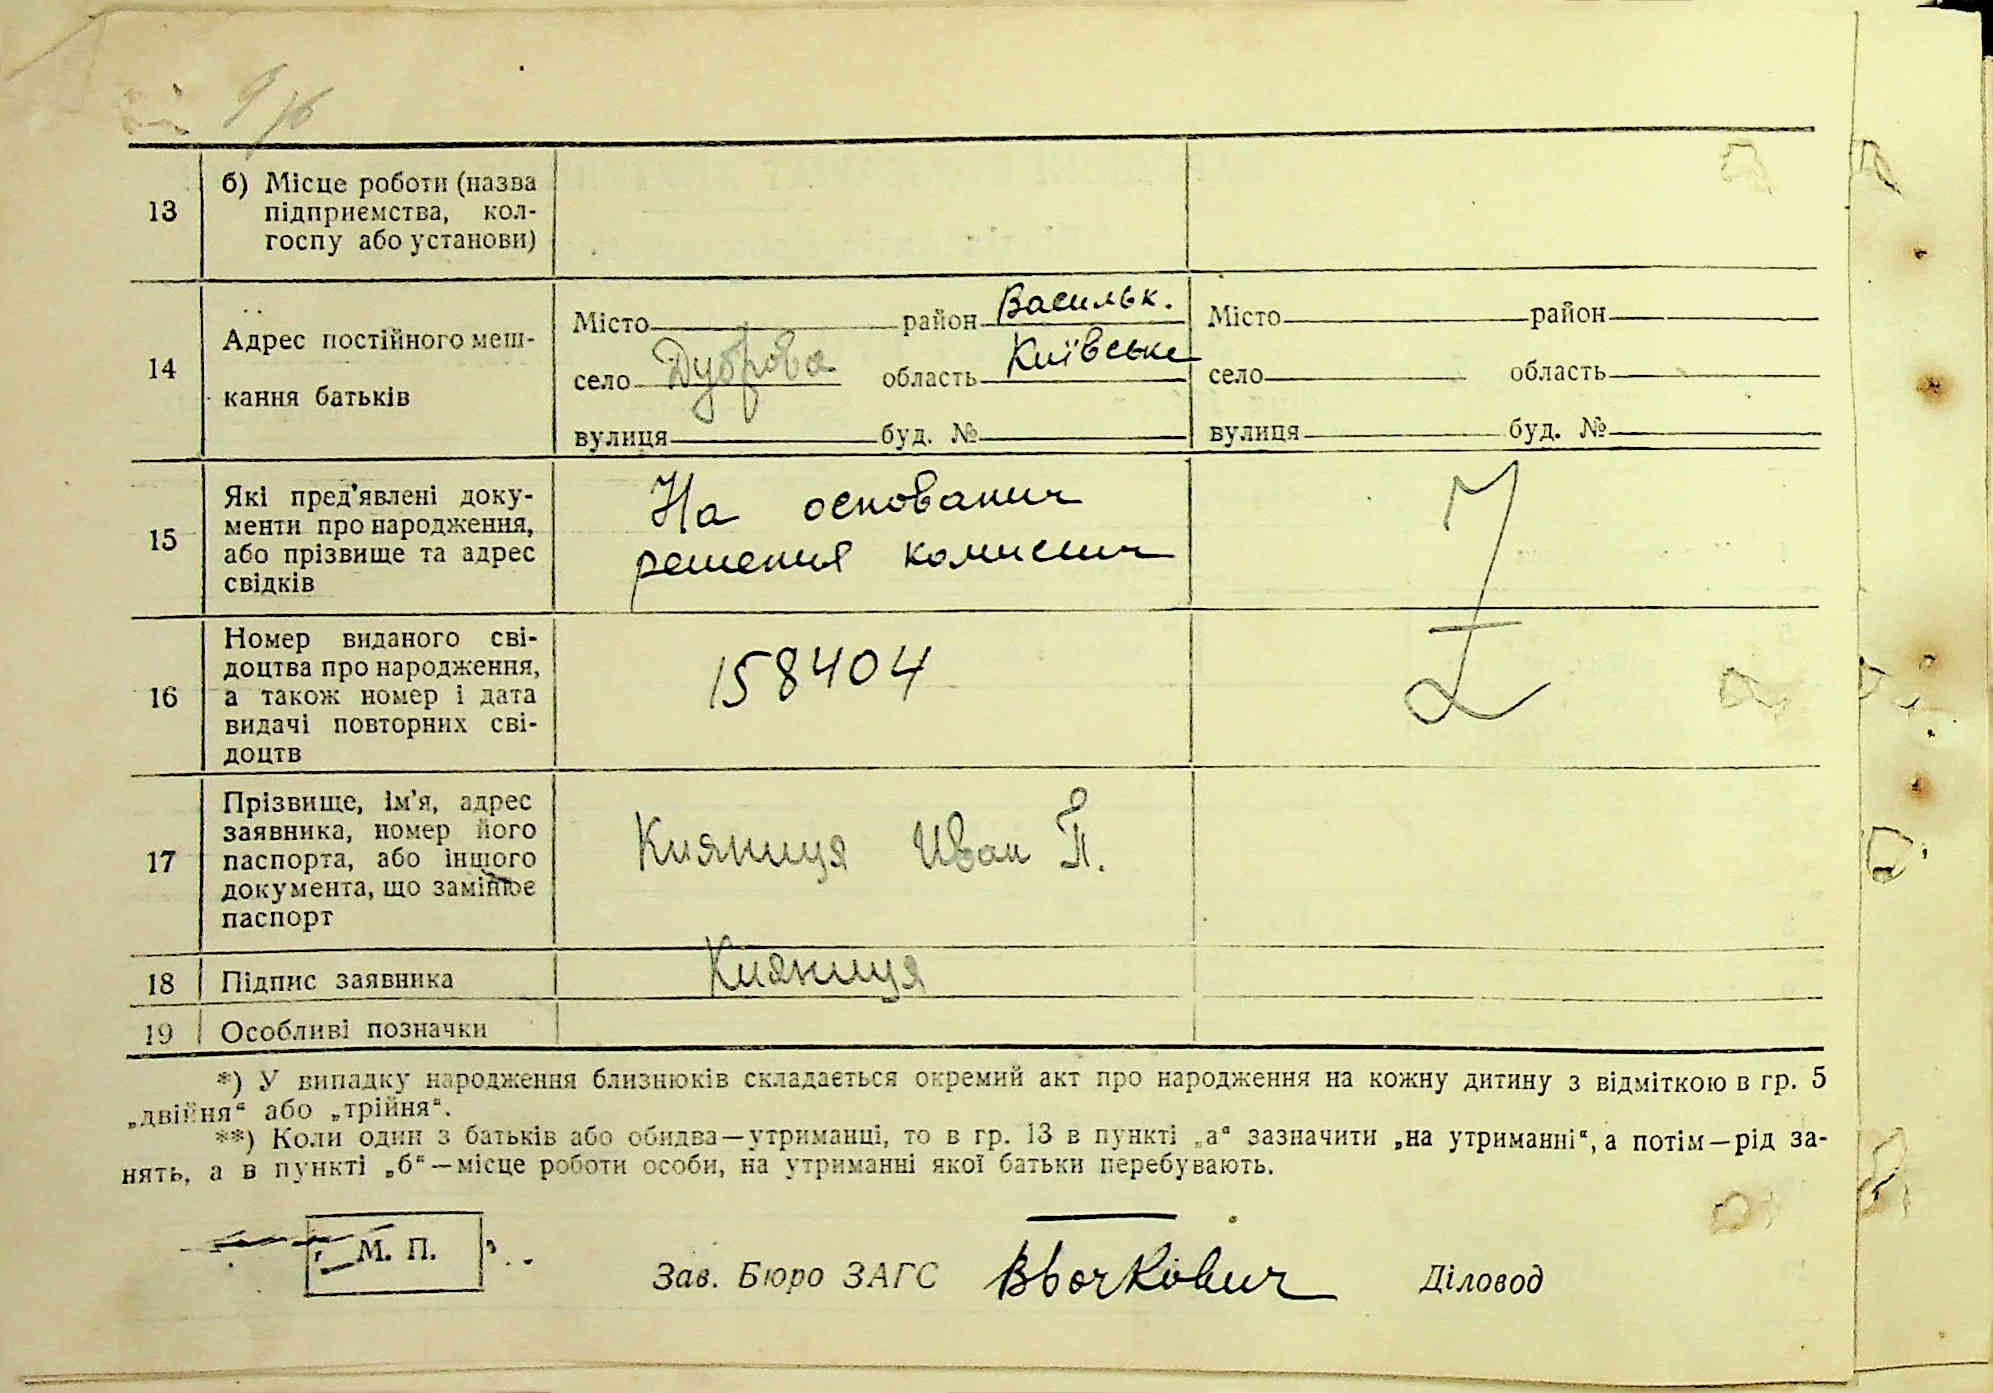 13
б) Місце роботи (назва
підприємства, кол-
госпу або установи)
14
Адрес постійного меш-
кання батьків
Місто район Васильк.
село Дуброва область Київське
вулиця буд. №
Місто район
село область
вулиця буд. №
15
Які пред'явлені доку-
менти про народження,
або прізвище та адрес
свідків
На основании
решения комиссии
16
Номер виданого сві-
доцтва про народження,
а також номер і дата
видачі повторних сві-
доцтв
158404
17
Прізвище, ім'я, адрес
заявника, номер його
паспорта, або іншого
документа, що замінює
паспорт
Кияниця Иван П.
18 Підпис заявника Кияниця
19 Особливі позначки
*) У випадку народження близнюків складається окремий акт про народження на кожну дитину з відміткою в гр. 5
„двійня“ або „трійня“.
**) Коли один з батьків або обидва—утриманці, то в гр. 13 в пункті „а“ зазначити „на утриманні“, а потім—рід за-
нять, а в пункті „б“—місце роботи особи, на утриманні якої батьки перебувають.
М. П.
Зав. Бюро ЗАГС Діловод